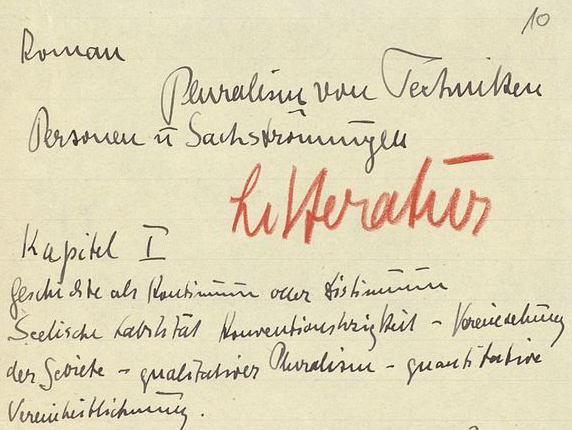 10
Roman
Pluralism von Techniken
Personen u Sachströmungen
Litteratur
Kapitel I
Geschichte als Kontinuum oder Distinuum
Seelische Labilität Konventionslosigkeit –
der Societe – qualitativer Pluralism – quantitative
Vereinheitlichung.